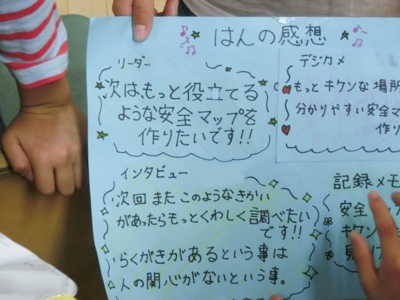 はんの感想
リーダー
次はもっと役立てる
ような安全マップを
作りたいです!!
デジカメ
もっとキケンな場所
分かりやすい安全マ
作り
インタビュー
次回 また このようなきかい
があったらもっとくわしく調べたい
です!!
らくがきがあるという事は
人の関心がないという事。
記録メモ
安全
キケン